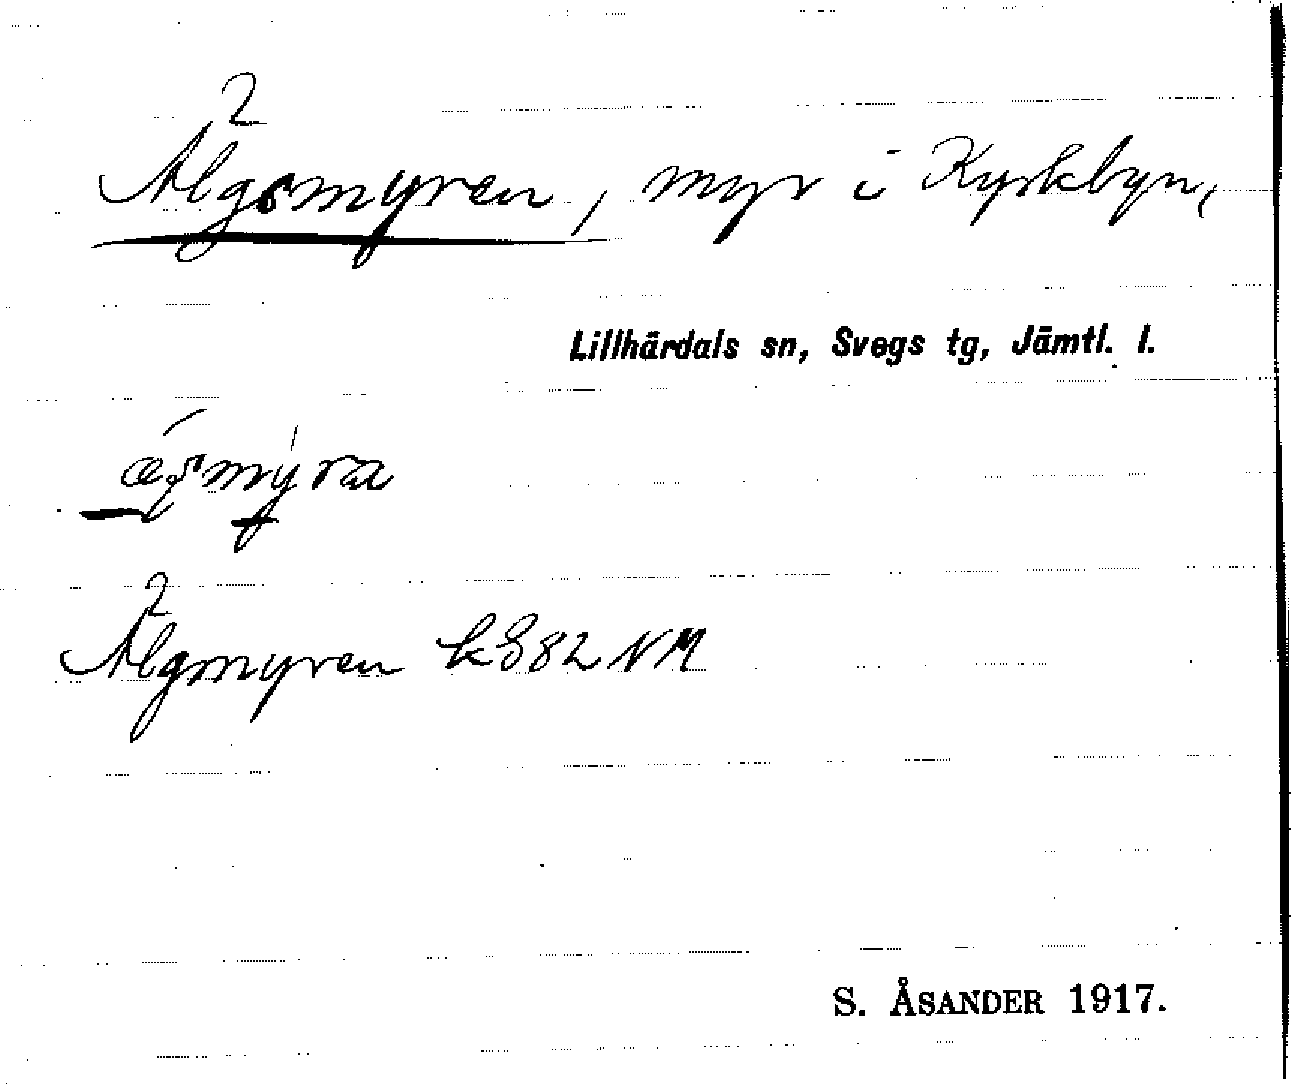 2
Älgsmyren, myr i Kyrkbyn,
Lillhärdals sn, Svegs tg, Jämtl. l.
2
Älgmyren NM
S. ÅSANDER 1917.